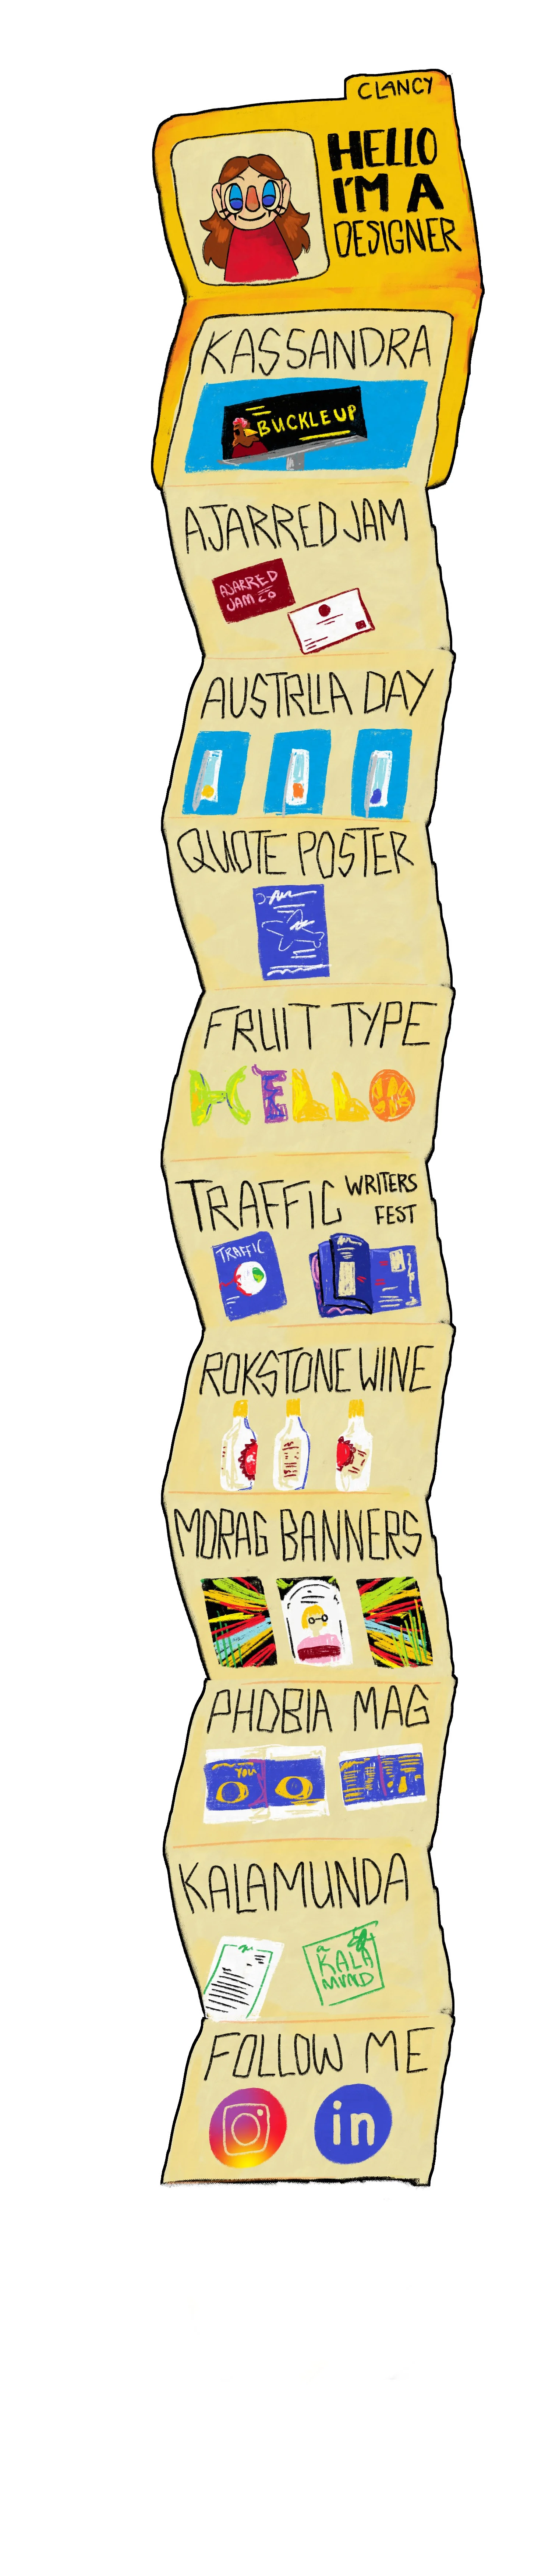 CLANCY
HELLO
I'M A
DESIGNER
KASSANDRA
BUCKLE UP
AJARRED JAM
AJARRED
JAM CO
AUSTRLIA DAY
QUOTE POSTER
FRUIT TYPE
HELLO
TRAFFIC WRITERS
FEST
TRAFFIC
ROKSTONE WINE
MORAG BANNERS
PHOBIA MAG
YOU
KALAMUNDA
a
KALA
MUND
FOLLOW ME
in